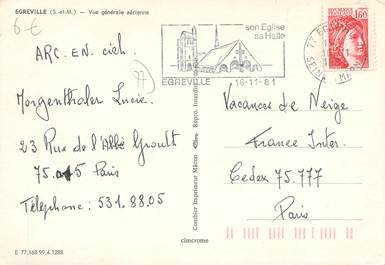 EGREVILLE (S.-et-M.) — Vue générale aérienne
6-€
ARC. EN. ciel.
77
Morgenthaler Lucie.
23 Rue de l'Abbé Groult
75.015 Paris
Téléphone: 531.88.05
E 77,168.99.4.1288
Combier Imprimeur Mâcon
cimcrome
son Eglise
sa Halle
EGREVILLE
16-11-81
1,60
Vacances de Neige
France Inter.
Cedex 75.777
Paris